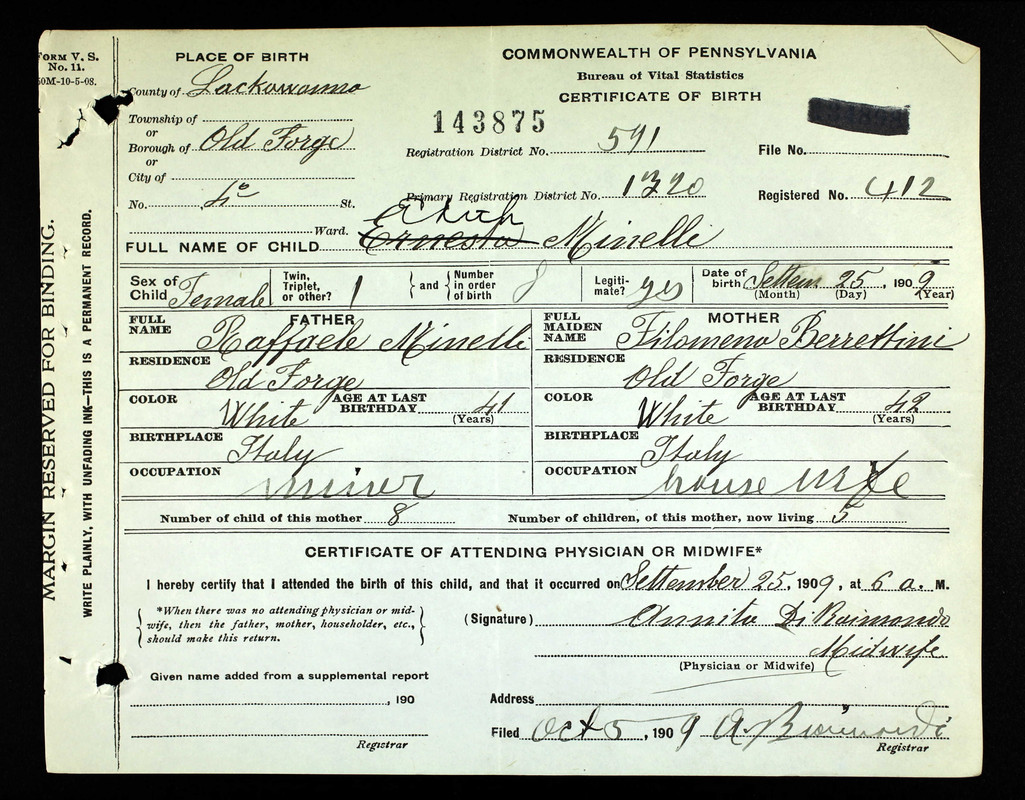 FORM V. S.
No. 11.
50M-10-5-08.
MARGIN RESERVED FOR BINDING.
WRITE PLAINLY, WITH UNFADING INK—THIS IS A PERMANENT RECORD.
PLACE OF BIRTH
County of Lackawanna
Township of
or
Borough of Old Forge
or
City of
No. St.
Ward.
COMMONWEALTH OF PENNSYLVANIA
Bureau of Vital Statistics
CERTIFICATE OF BIRTH
143875
Registration District No. 591
File No.
Primary Registration District No. 1320
Registered No. 412
Edith
FULL NAME OF CHILD Ernesta Minelli
Sex of Child Female
Twin, Triplet, or other? 1
and Number in order of birth 8
Legitimate? yes
Date of birth Settem 25, 1909
(Month) (Day) (Year)
FATHER
FULL NAME Raffaele Minelli
RESIDENCE Old Forge
COLOR White AGE AT LAST BIRTHDAY 41
(Years)
BIRTHPLACE Italy
OCCUPATION miner
MOTHER
FULL MAIDEN NAME Filomena Berrettini
RESIDENCE Old Forge
COLOR White AGE AT LAST BIRTHDAY 42
(Years)
BIRTHPLACE Italy
OCCUPATION house wife
Number of child of this mother 8 Number of children, of this mother, now living 5
CERTIFICATE OF ATTENDING PHYSICIAN OR MIDWIFE*
I hereby certify that I attended the birth of this child, and that it occurred on Settember 25, 1909, at 6 a. M.
*When there was no attending physician or mid-
wife, then the father, mother, householder, etc.,
should make this return.
(Signature) Annita DiRaimondo
Midwife
(Physician or Midwife)
Given name added from a supplemental report
, 190
Registrar
Address
Filed Oct 5, 1909 A.
Registrar